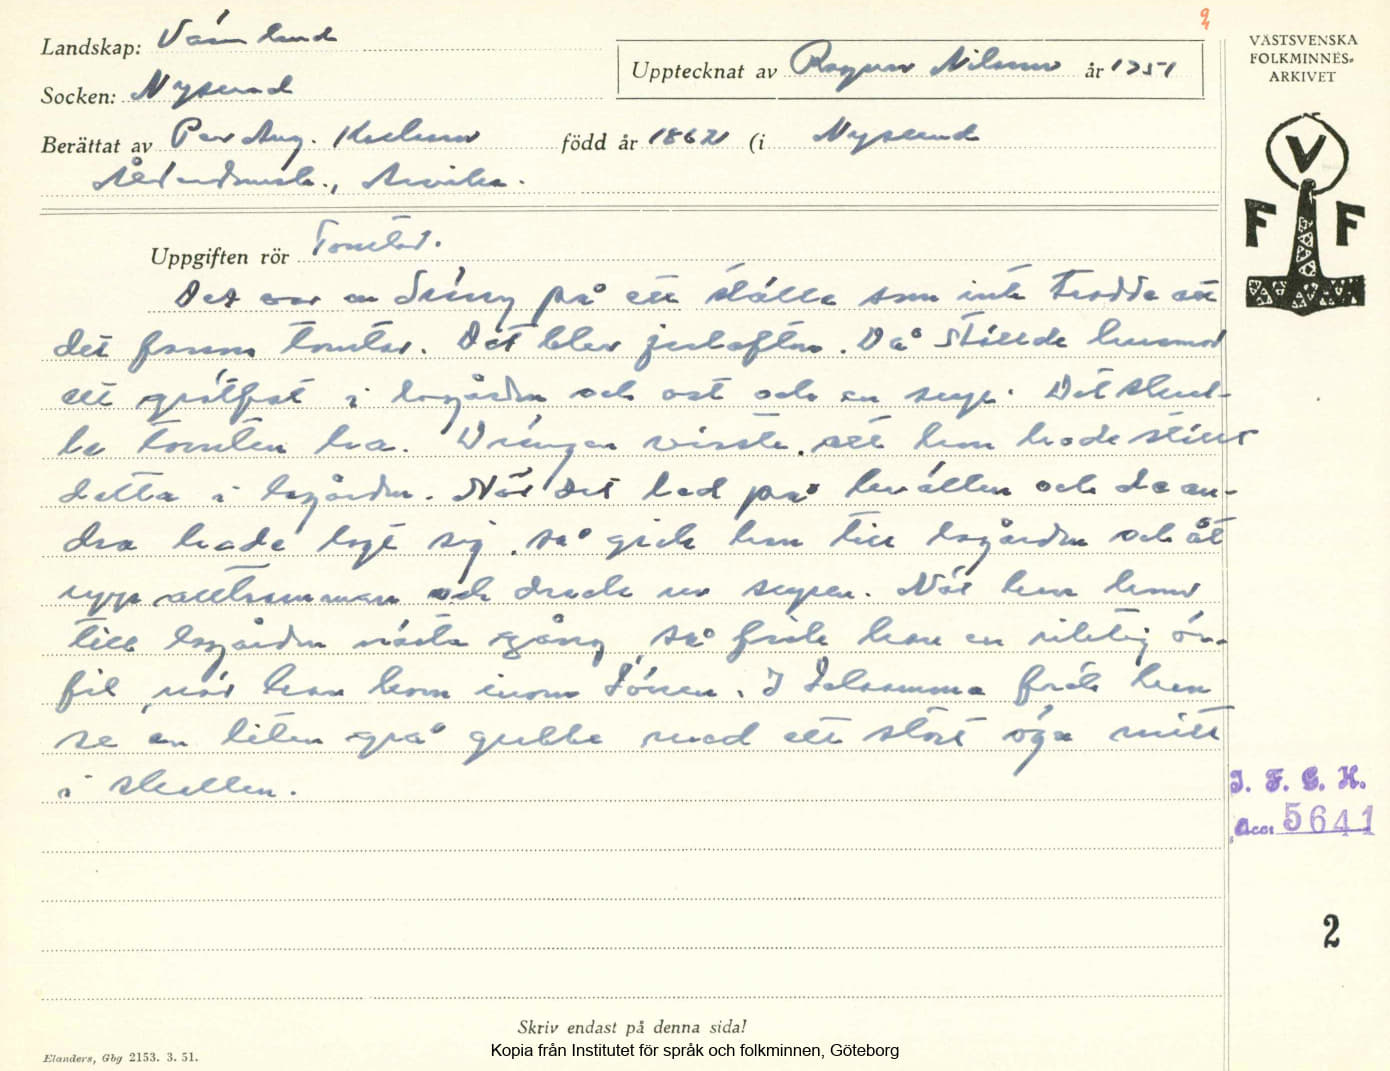 9
Landskap: Värmland
VÄSTSVENSKA
FOLKMINNES-
ARKIVET
Upptecknat av Ragnar Nilsson år 1951
Socken: Nysund
Berättat av Per Aug. Karlsson född år 1862 (i Nysund
Arvika.
V
F F
Uppgiften rör Tomtar.
Det var en dräng på ett ställe som inte trodde att
det fanns tomtar. Det blev julafton. Då ställde husmor
ett grötfat i logården och ost och en sup. Det skul-
le tomten ha. Drängen visste att hon hade ställt
detta i logården. När det led på kvällen och de an-
dra hade lagt sig, så gick han till logården och åt
upp alltsammans och drack ur supen. När han kom
till logården nästa gång, så fick han en riktig ör-
fil när han kom inom dörren. I detsamma fick han
se en liten grå gubbe med ett stort öga mitt
i skallen.
I. F. G. H.
Acc. 5641
2
Skriv endast på denna sida!
Elanders, Gbg 2153. 3. 51.
Kopia från Institutet för språk och folkminnen, Göteborg